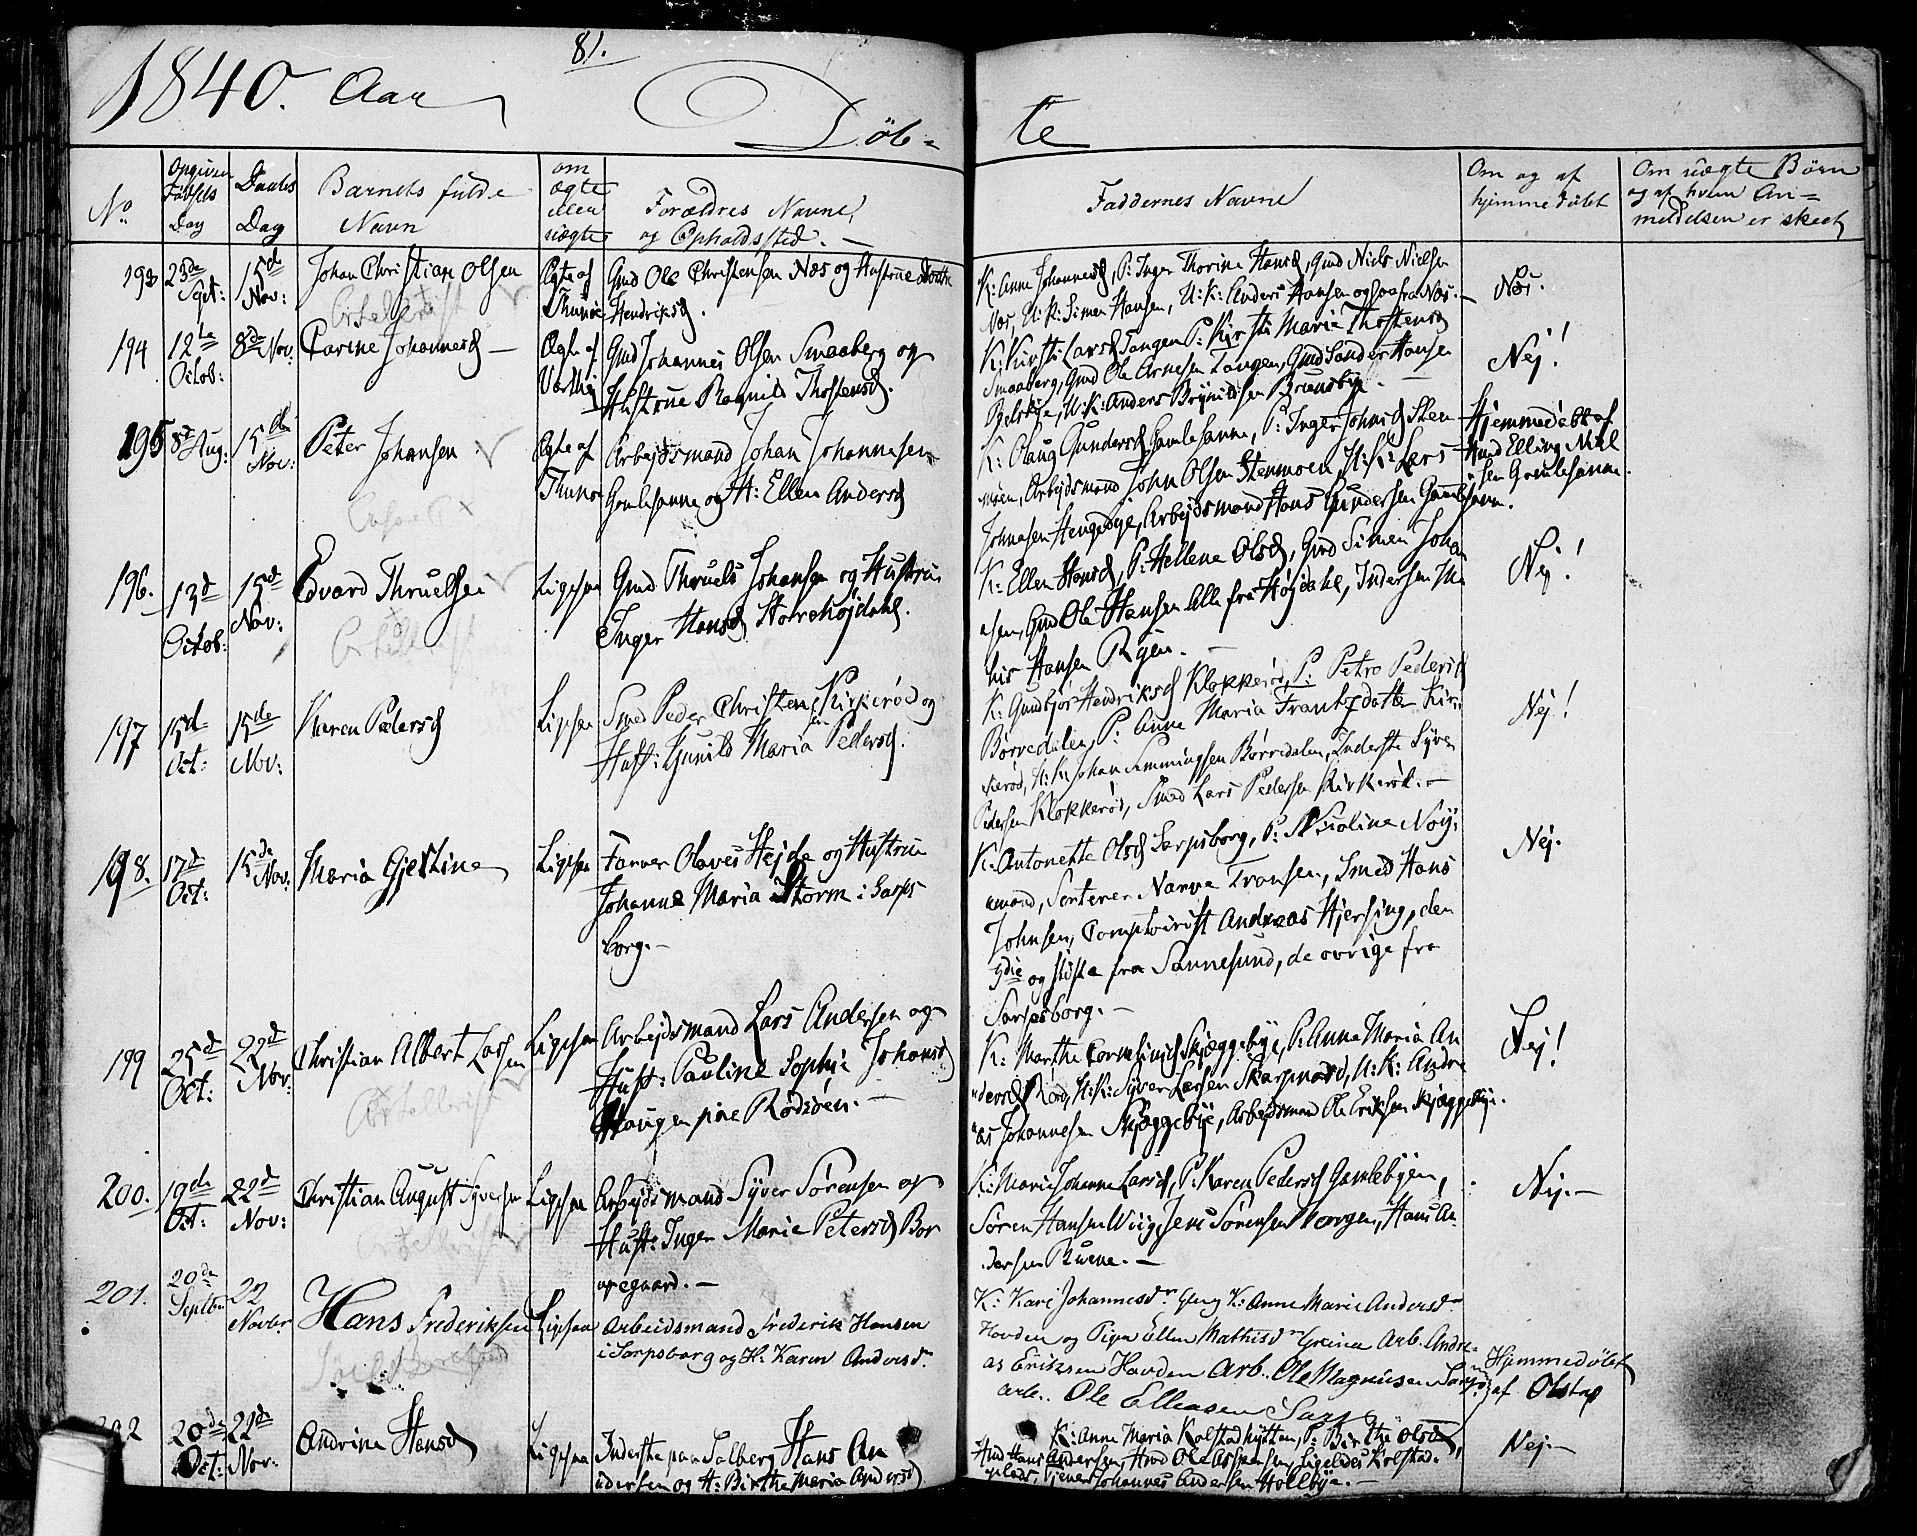 81.
1840. Aar
Døb=
te
No
Opgiven Fødsels Dag
Daabs Dag
Barnets fulde Navn
om ægte eller uægte
Forældres Navne, og Opholdssted. —
Faddernes Navne
Om og af hjemmedøbt
Om uægte Børn og af hvem An= meldelsen er skeet
193
23de Sept:
15de Nov:
Johan Christian Olsen
Ægte af Thunø
Gmd Ole Christensen Næs og Hustrue Dorthe
Hendriksd.
K: Anne Johannesd, P: Inger Thorine Hansd, Gmd Niels Nielsen
Næs, U: K: Simen Hansen, U: K: Anders Hansen ogsaa fra Næs. —
Nei.
194
12te Octob:
8de Nov:
Carine Johannesd —
Ægte af
Gmd Johannes Olsen Smaaberg og
Hustrue Ragnild Thostensd.
K: Kirsti Larsd Tangen P: Kirsti Maria Thostensd
Smaaberg, Gmd Ole Arnesen Tangen, Gmd Sander Hansen
U: K: Anders Brynildsen Brunsbye. —
Nej!
195
8de Aug:
15de Nov:
Peter Johansen
Ægte af Thunø
Arbejdsmand Johan Johannesen
Gamlesanne og H: Ellen Andersd
K: Olaug Gundersd Gamlesanne, P: Inger Johnsd Steen
moen, Arbejdsmand John Olsen Stenmoen, U: K: Lars
Johnsen Hengedye, Arbejdsmand Hans Gundersen Gamlesanne.
Hjemmedøbt af
Elling Niel
sen Gamlesanne.
196.
13d Octob:
15de Nov:
Edvard Thruelsen
Ligesaa
Gmd Thruels Johansen og Hustrue
Inger Hansd Storehøjdahl.
K: Ellen Hansd, P: Hellene Olsd, Gmd Simen Johan
nsen, Gmd Ole Hansen alle fra Højdahl, Indersten Ma
his Hansen Ryen. —
Nej!
197
15d Oct:
15de Nov:
Karen Pedersd
Ligesaa
Smed Peder Christensen Kirkerød og
Hust: Gunild Maria Pedersd.
K: Gunbjør Hendriksd Klokkerød, P: Petro Pedersd
Børvedalen, P: Anne Maria Frantzdatter Kir
kerød, U: K: Johan Ammingsen Børredalen, Inderste Syver
Pedersen Klokkerød, Smed Lars Pedersen Kirkerød. —
Nej!
198.
17d Oct:
15de Nov:
Maria Gjestine
Ligesaa
Farver Olaves Hejde og Hustrue
Johanne Maria Storm i Sarps
borg. —
K: Antonette Olsd Sarpsborg, P: Nicoline Noij
emand, Sorterer Narve Transen, Smed Hans
Johnsen, Comptoirist Andreas Hjersing, den
3die og sidste fra Sannesund, de øvrige fra
Sarpsborg. —
Nej.
199
25de Oct:
22d Nov:
Christian Albert Larsen
Ligesaa
Arbejdsmand Lars Andersen og
Hust: Pauline Sophie Johansd
Haugen paa Rødsøen. —
K: Marthe Cornelinesd Skjæggebye, P: Anne Maria An
dersd Røed, U: K: Syver Larsen Skarpnord, U: K: Andre
as Johannesen Skjæggebye, Arbejdsmand Ole Eriksen Skjæggebye.
Nej!
200.
19de Oct:
22d Nov:
Christian August Syversen
Ligesaa
Arbejdsmand Syver Sørensen og
Hust: Inger Marie Petersd Bor
regaard. —
K: Marie Johanne Larsd, P. Karen Pedersd Gamlebyen,
Søren Hansen Wiig, Jens Sørensen Borgen, Hans An
dersen Ruene. —
Nej. —
201.
20de Septbr
22 Novbr
Hans Frederiksen
Ligesaa
Arbeidsmand Frederik Hansen
i Sarpsborg og H: Karen Andersdr.
K: Kari Johannesdr Gleng K: Anne Marie Andersdr
Hovden og Pigen Ellen Mathisdr Greina Arb. Andre=
as Eriksen Hovden Arb. Ole Magnusen Sarpsb.
arb. Ole Ellevsen Sarp
Hjemmedøbt
af Olstad
202
20de Oct:
22de Nov:
Andrine Hansd
Ligesaa
Inderste paa Solberg Hans An
dersen og H: Birthe Maria Andersd
K: Anne Maria Kolstadhytten, P: Birthe Olsd,
Hans Andersen, Ole Aslaksen, Ligeledes Kolstad.
plads, Tjener Johannes Andersen Hollebye. —
Nej. —